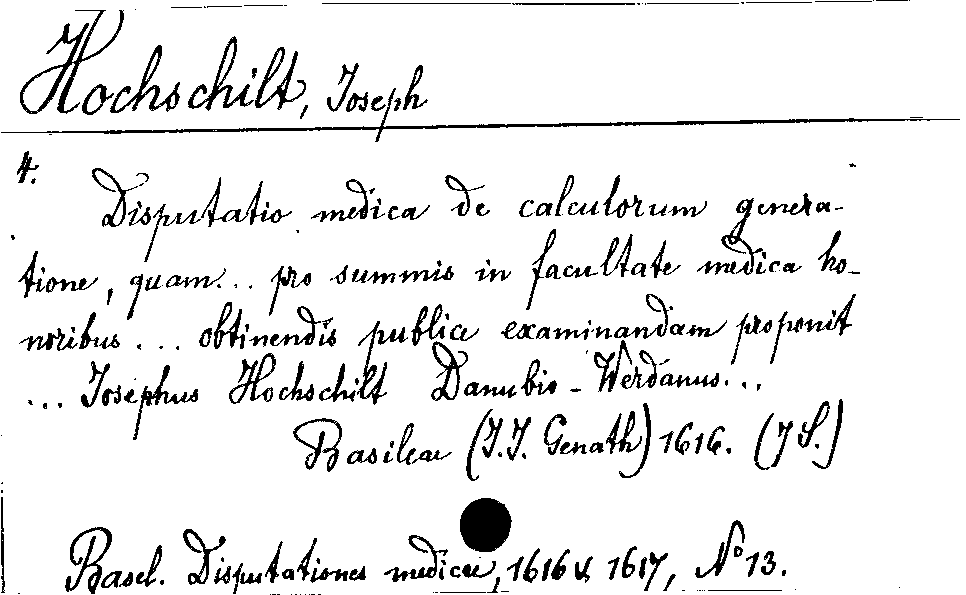 Hochschilt, Joseph
4.
Disputatio medica de calculorum genera-
tione, quam... pro summis in facultate medica ho-
noribus ... obtinendis publice examinandam proponit
... Josephus Hochschilt Danubio-Werdanus...
Basileae (J. J. Genath) 1616. (7 S.)
Basel. Disputationes medicae, 1616 & 1617, No 13.